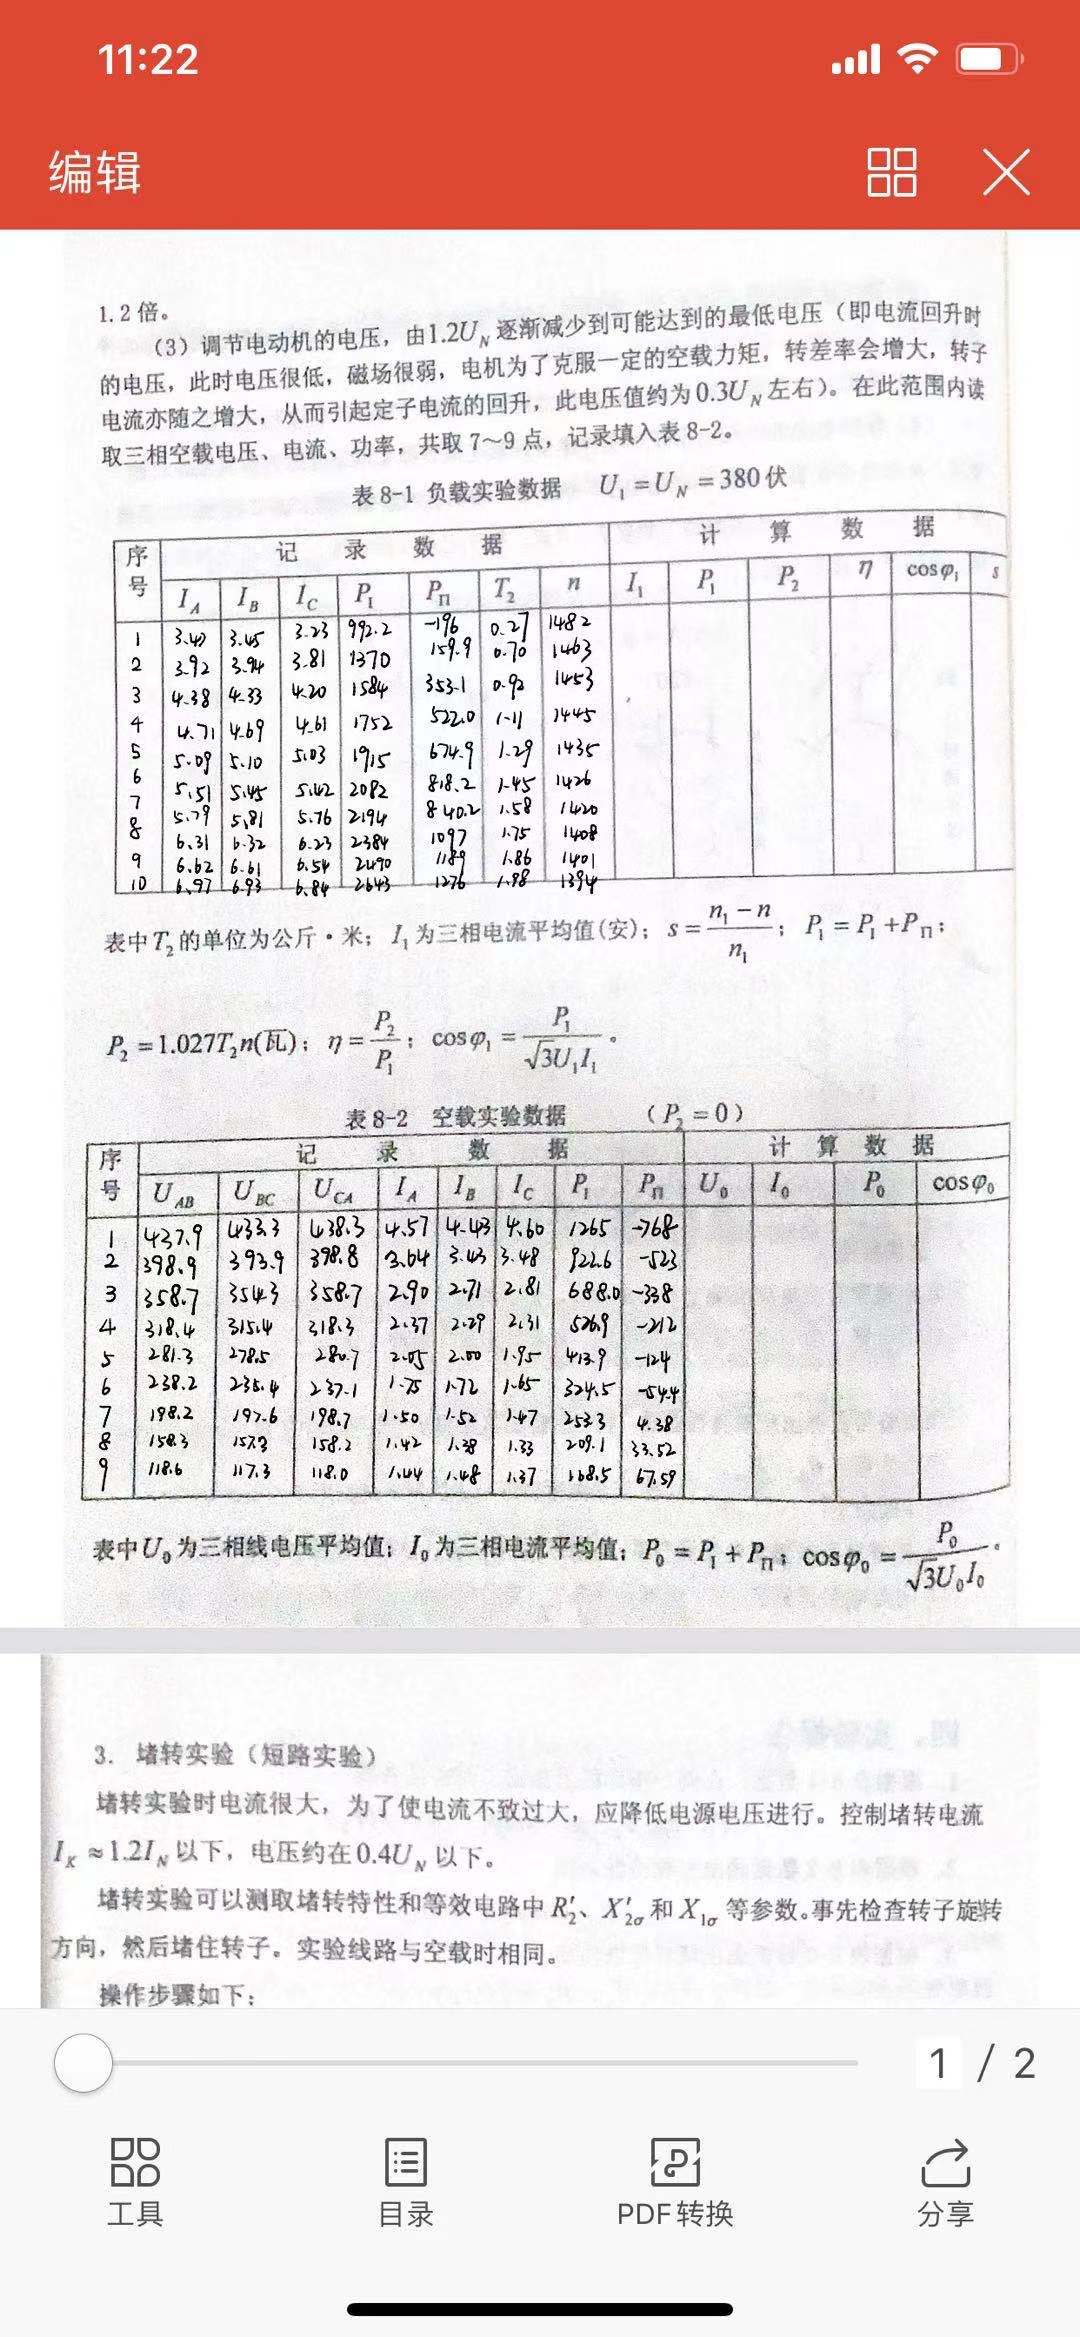 11:22
编辑
1.2倍。
(3) 调节电动机的电压，由1.2U_N逐渐减少到可能达到的最低电压（即电流回升时
的电压，此时电压很低，磁场很弱，电机为了克服一定的空载力矩，转差率会增大，转子
电流亦随之增大，从而引起定子电流的回升，此电压值约为0.3U_N左右）。在此范围内读
取三相空载电压、电流、功率，共取7～9点，记录填入表8-2。
表8-1 负载实验数据 U₁=U_N=380伏
序号 记录数据 计算数据
I_A I_B I_C P_Ⅰ P_Ⅱ T₂ n I₁ P₁ P₂ η cosφ₁ s
1 3.45 3.23 992.2 -196 0.27 1482
2 3.92 3.94 3.81 1370 159.9 0.70 1463
3 4.38 4.33 4.20 1584 353.1 0.92 1453
4 4.71 4.69 4.61 1752 522.0 1.11 1445
5 5.09 5.10 5.03 1915 674.9 1.29 1435
6 5.51 5.45 5.42 2082 818.2 1.45 1426
7 5.79 5.81 5.76 2194 840.2 1.58 1420
8 6.31 6.32 6.23 2384 1097 1.75 1408
9 6.62 6.61 6.54 2490 1189 1.86 1401
10 6.97 6.93 6.84 2643 1276 1.98 1394
表中T₂的单位为公斤·米；I₁为三相电流平均值(安)；s=(n₁-n)/n₁；P₁=P_Ⅰ+P_Ⅱ；
P₂=1.027T₂n(瓦)；η=P₂/P₁；cosφ₁=P₁/(√3U₁I₁)。
表8-2 空载实验数据 （P₂=0）
序号 记录数据 计算数据
U_AB U_BC U_CA I_A I_B I_C P_Ⅰ P_Ⅱ U₀ I₀ P₀ cosφ₀
1 437.9 433.3 438.3 4.57 4.43 4.60 1265 -768
2 398.9 393.9 398.8 3.64 3.43 3.48 922.6 -523
3 358.7 354.3 358.7 2.90 2.71 2.81 688.0 -338
4 318.4 315.4 318.3 2.37 2.29 2.31 526.9 -212
5 281.3 278.5 280.7 2.05 2.00 1.95 413.9 -124
6 238.2 235.4 237.1 1.75 1.72 1.65 324.5 -54.4
7 198.2 197.6 198.7 1.50 1.52 1.47 253.3 4.38
8 158.3 157.3 158.2 1.42 1.38 1.33 209.1 33.52
9 118.6 117.3 118.0 1.44 1.48 1.37 168.5 67.59
表中U₀为三相线电压平均值；I₀为三相电流平均值；P₀=P_Ⅰ+P_Ⅱ；cosφ₀=P₀/(√3U₀I₀)。
3. 堵转实验（短路实验）
堵转实验时电流很大，为了使电流不致过大，应降低电源电压进行。控制堵转电流
I_K≈1.2I_N以下，电压约在0.4U_N以下。
堵转实验可以测取堵转特性和等效电路中R′₂、X′₂σ和X₁σ等参数。事先检查转子旋转
方向，然后堵住转子。实验线路与空载时相同。
操作步骤如下：
1 / 2
工具 目录 PDF转换 分享